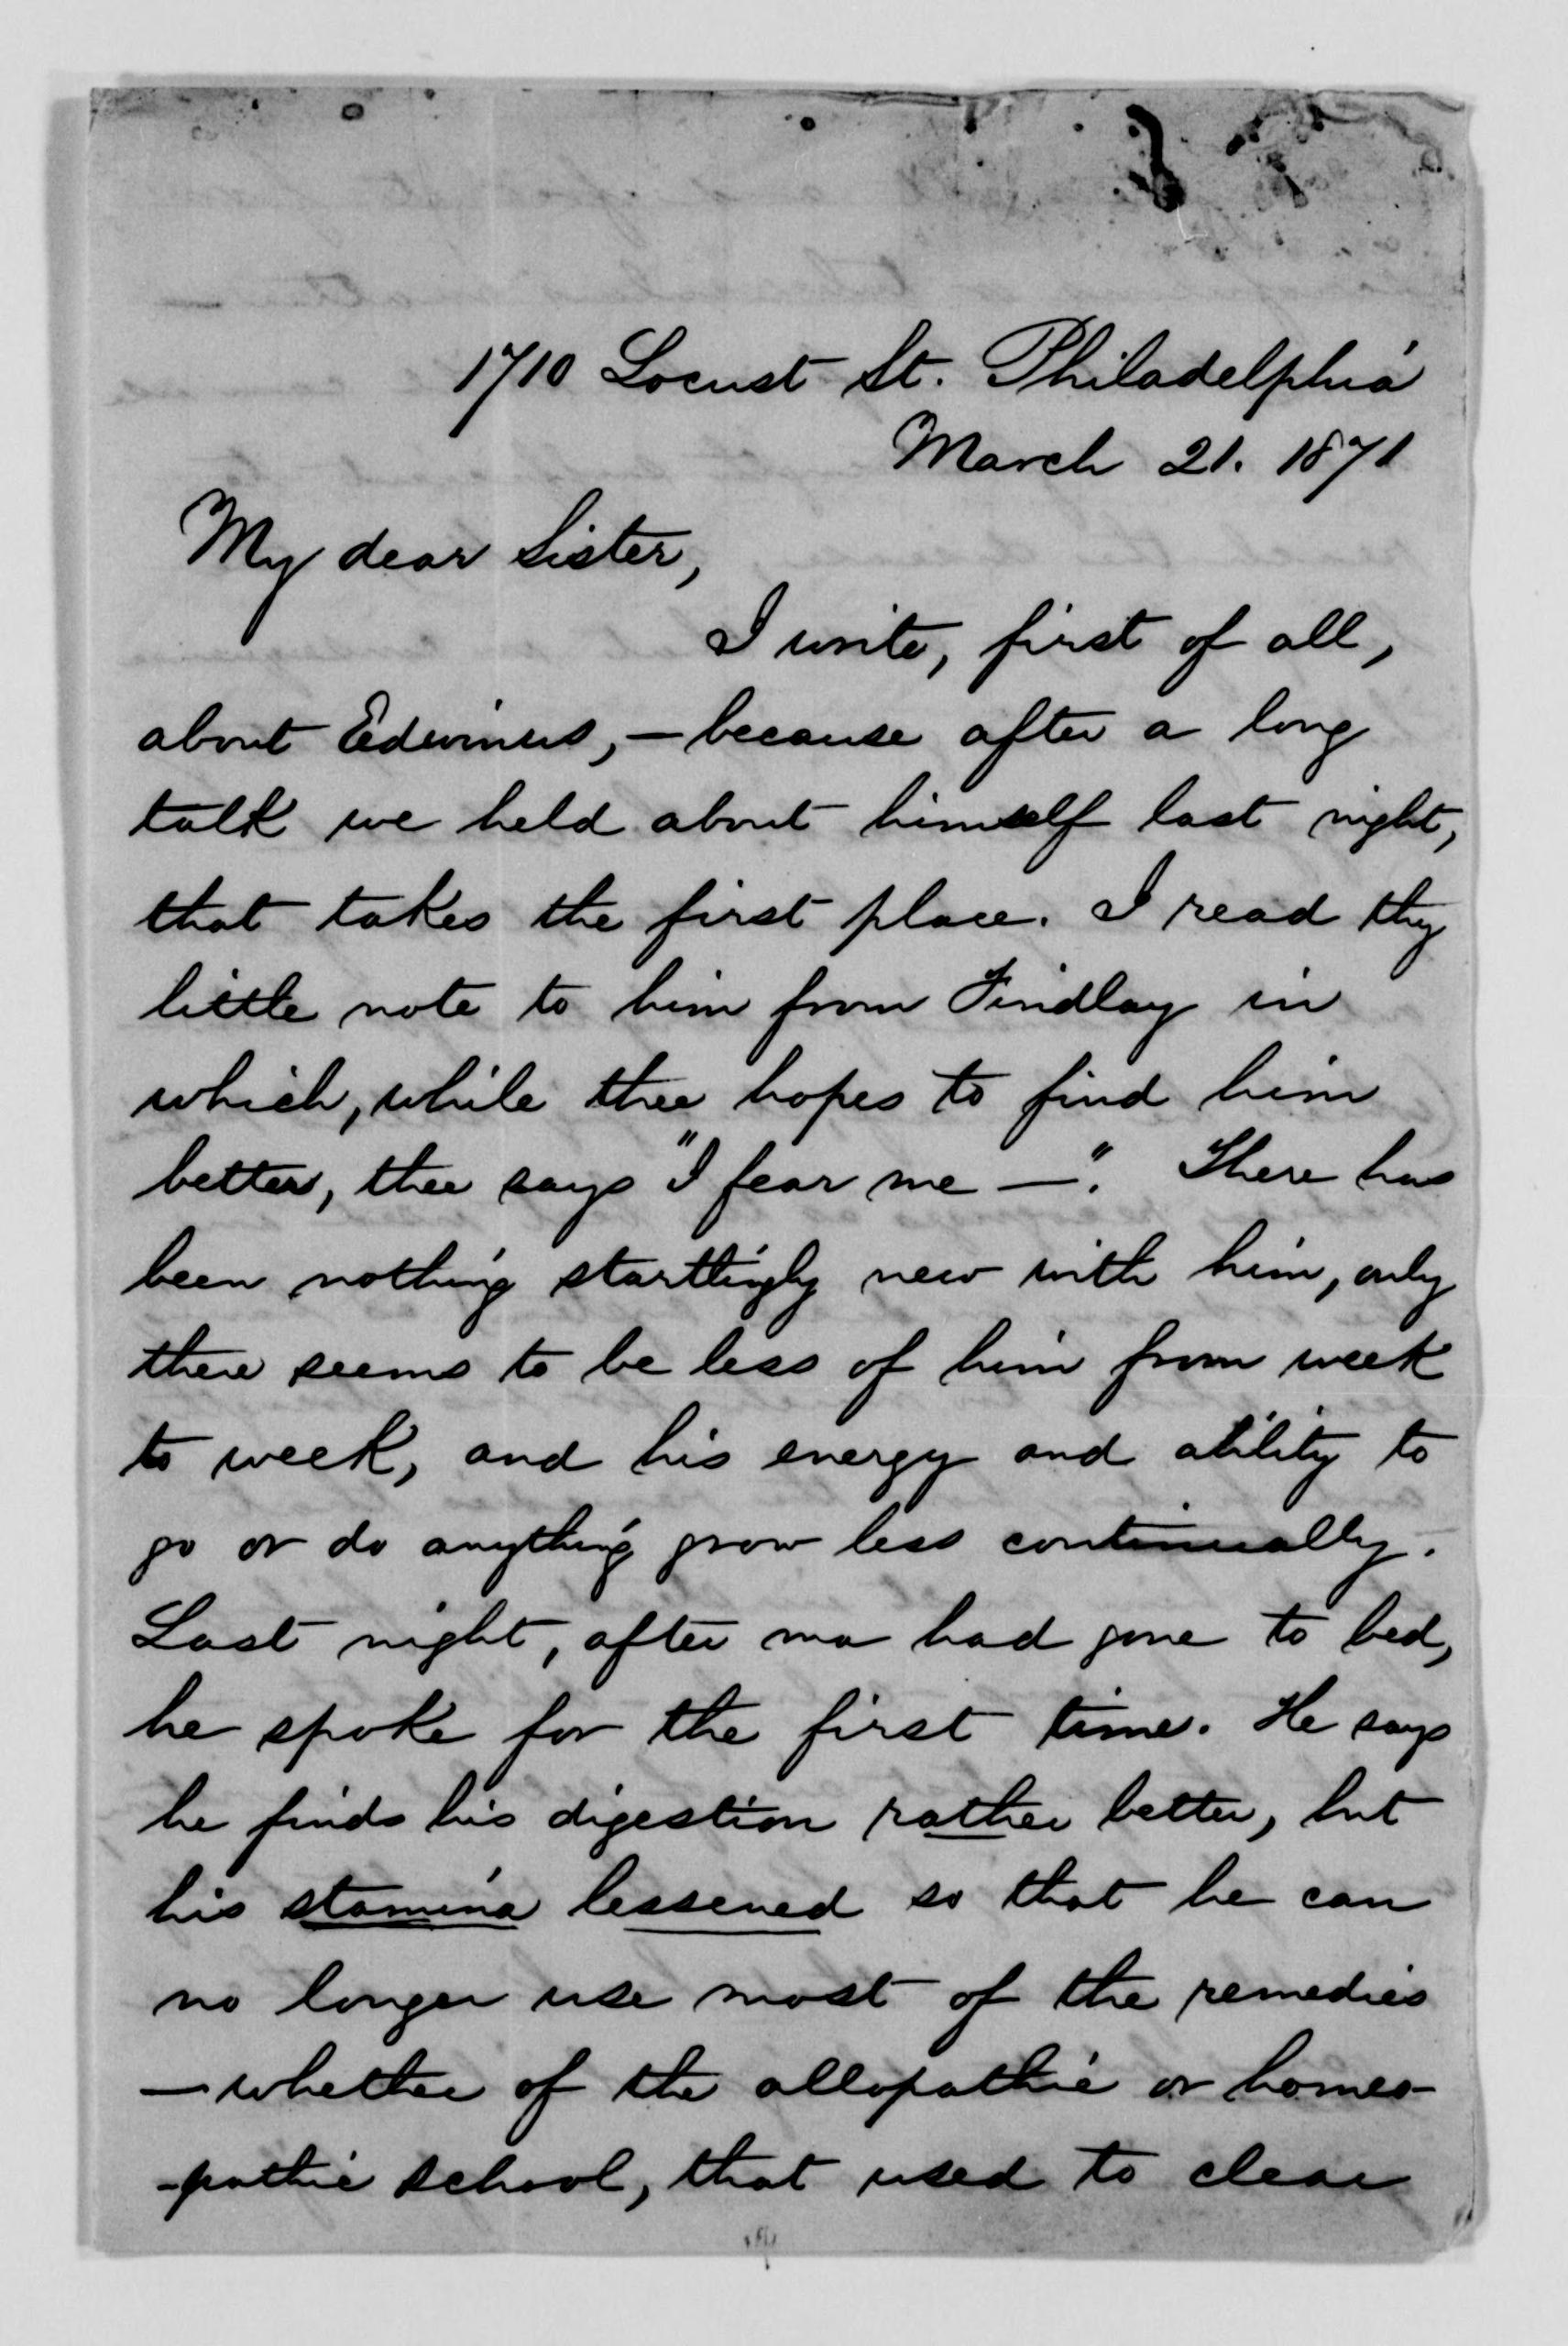 1710 Locust St. Philadelphia
March 21. 1871
My dear Sister,
I write, first of all,
about Edwinus, — because after a long
talk we held about himself last night,
that takes the first place. I read thy
little note to him from Findlay in
which, while thee hopes to find him
better, thee says "I fear me —". There has
been nothing startlingly new with him, only
there seems to be less of him from week
to week, and his energy and ability to
go or do anything grow less continually.
Last night, after ma had gone to bed,
he spoke for the first time. He says
he finds his digestion rather better, but
his stamina lessened so that he can
no longer use most of the remedies
— whether of the allopathic or homeo-
-pathic school, that used to clear